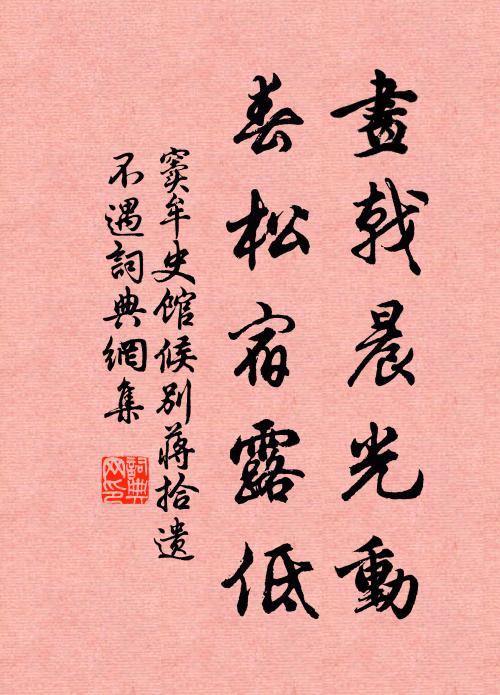 畫戟晨光動
春松宿露低
竇牟史館候別蔣拾遺
不遇詞典網集
詞典
网印